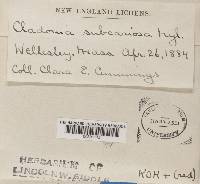 NEW ENGLAND LICHENS.
Cladonia subcariosa Nyl.
Wellesley, Mass Apr. 26, 1884
Coll. Clara E. Cummings
UNIVERSITY
HERBARIUM OF
LINCOLN W. RIDDLE
KOH + (red)